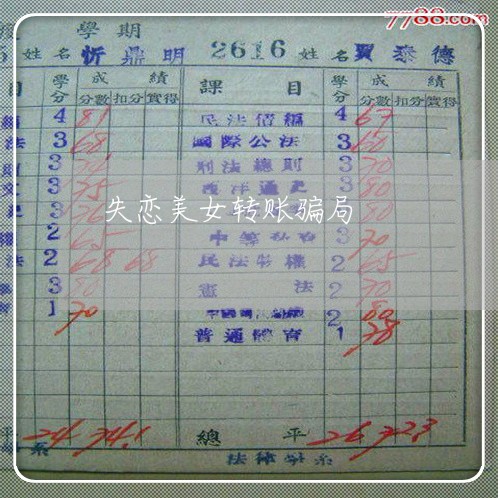 7788.com
學期
姓名 忻鼎明 2616 姓名 賈泰德
目 學分 成績 課目 學分 成績
分數 扣分 實得 分數 扣分 實得
4 81 民法債編 4 67
法 3 68 國際公法 3 60
3 刑法總則 3 70
3 75 西洋通史 3 80
3 80
失恋美女转账骗局
2 65 3 70
法 2 68 68 民法物權 2 65
3 80 憲法 2 70
1 70 2 80
普通體育 1 78
平 24 74.1 總平 26 72.3
系 法律學系